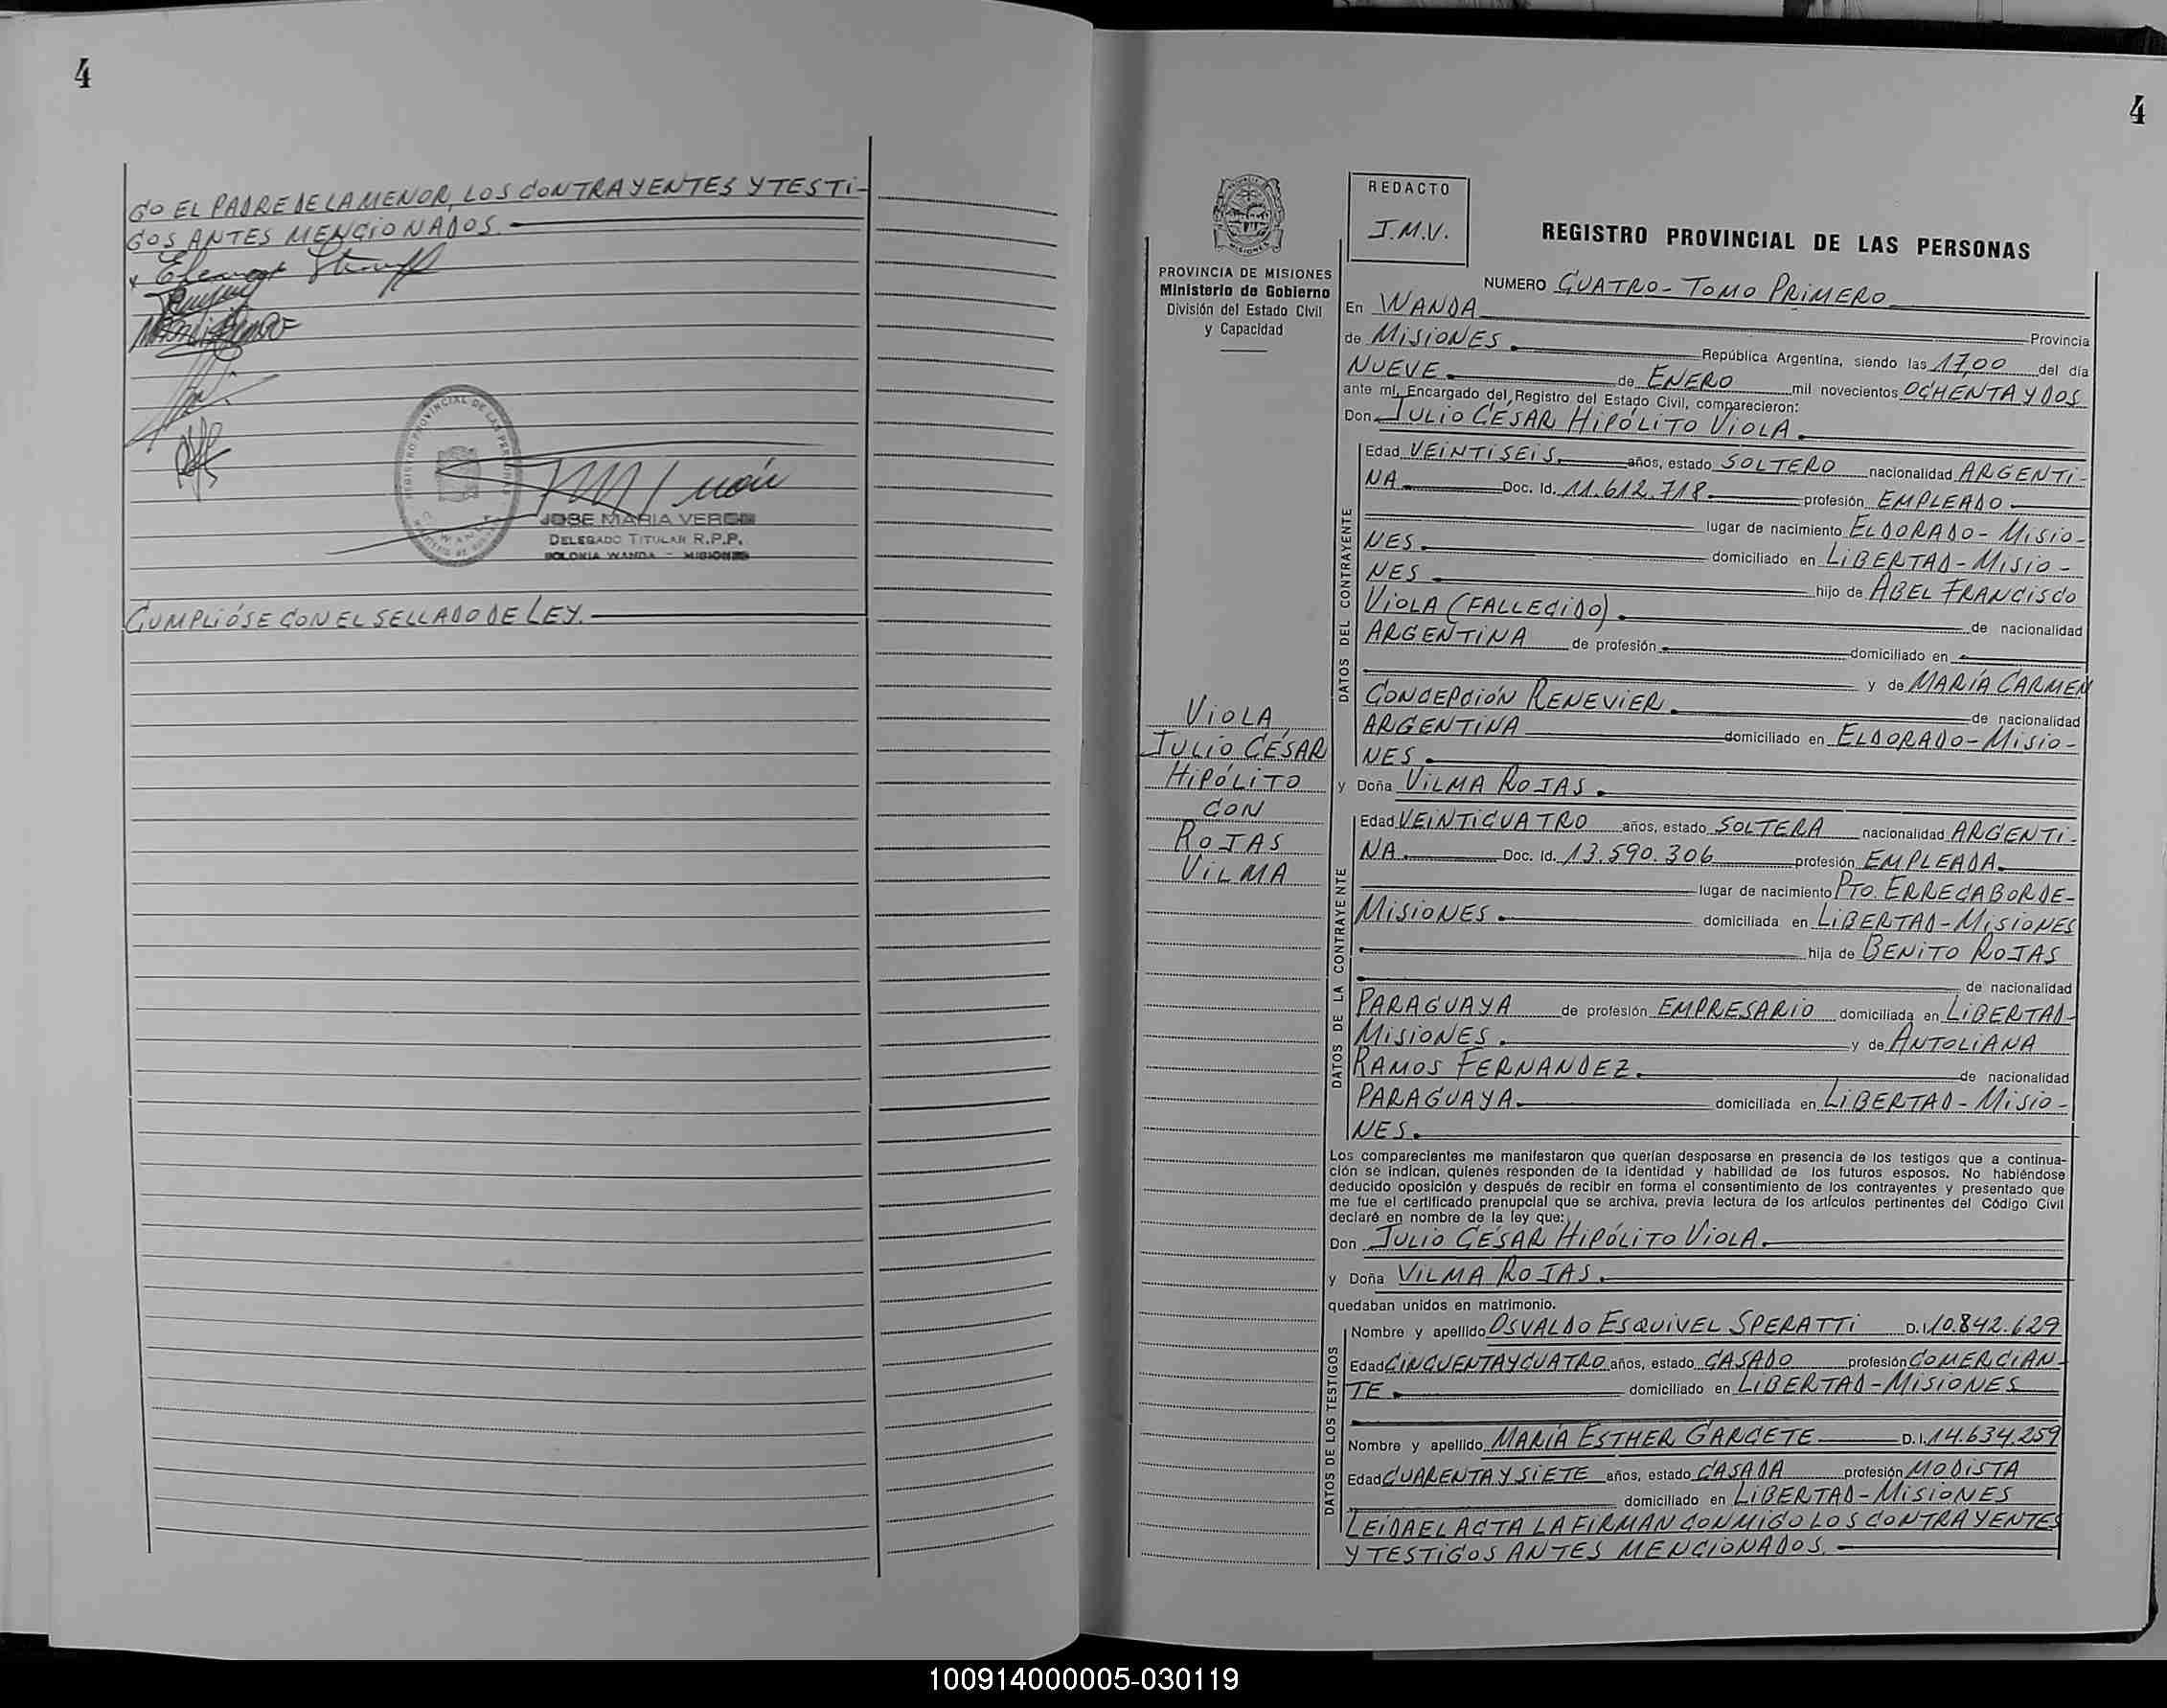 4
GO EL PADRE DE LA MENOR, LOS CONTRAYENTES Y TESTI-
GOS ANTES MENCIONADOS.
JOSE MARIA VERON
DELEGADO TITULAR R.P.P.
COLONIA WANDA - MISIONES
CUMPLIÓSE CON EL SELLADO DE LEY.
4
PROVINCIA DE MISIONES
Ministerio de Gobierno
División del Estado Civil
y Capacidad
VIOLA
JULIO CÉSAR
HIPÓLITO
CON
ROJAS
VILMA
REDACTO
J.M.V.
REGISTRO PROVINCIAL DE LAS PERSONAS
NUMERO CUATRO - TOMO PRIMERO
En WANDA Provincia
de MISIONES. República Argentina, siendo las 17,00 del día
NUEVE de ENERO mil novecientos OCHENTA Y DOS
ante mí, Encargado del Registro del Estado Civil, comparecieron:
Don JULIO CÉSAR HIPÓLITO VIOLA.
DATOS DEL CONTRAYENTE
Edad VEINTISEIS años, estado SOLTERO nacionalidad ARGENTI-
NA. Doc. Id. 11.612.718 profesión EMPLEADO
lugar de nacimiento ELDORADO - MISIO-
NES. domiciliado en LIBERTAD - MISIO-
NES hijo de ABEL FRANCISCO
VIOLA (FALLECIDO). de nacionalidad
ARGENTINA de profesión domiciliado en
y de MARÍA CARMEN
CONCEPCIÓN RENEVIER. de nacionalidad
ARGENTINA domiciliado en ELDORADO - MISIO-
NES.
y Doña VILMA ROJAS.
DATOS DE LA CONTRAYENTE
Edad VEINTICUATRO años, estado SOLTERA nacionalidad ARGENTI-
NA. Doc. Id. 13.590.306 profesión EMPLEADA.
lugar de nacimiento PTO. ERRECABORDE-
MISIONES. domiciliada en LIBERTAD - MISIONES
hija de BENITO ROJAS
de nacionalidad
PARAGUAYA de profesión EMPRESARIO domiciliada en LIBERTAD-
MISIONES. y de ANTOLIANA
RAMOS FERNANDEZ. de nacionalidad
PARAGUAYA. domiciliada en LIBERTAD - MISIO-
NES.
Los comparecientes me manifestaron que querían desposarse en presencia de los testigos que a continua-
ción se indican, quienes responden de la identidad y habilidad de los futuros esposos. No habiéndose
deducido oposición y después de recibir en forma el consentimiento de los contrayentes y presentado que
me fue el certificado prenupcial que se archiva, previa lectura de los artículos pertinentes del Código Civil
declaré en nombre de la ley que:
Don JULIO CÉSAR HIPÓLITO VIOLA.
y Doña VILMA ROJAS.
quedaban unidos en matrimonio.
DATOS DE LOS TESTIGOS
Nombre y apellido OSVALDO ESQUIVEL SPERATTI D.I. 10.842.629
Edad CINCUENTA Y CUATRO años, estado CASADO profesión COMERCIAN-
TE. domiciliado en LIBERTAD - MISIONES
Nombre y apellido MARÍA ESTHER GARCETE D.I. 14.634.259
Edad CUARENTA Y SIETE años, estado CASADA profesión MODISTA
domiciliado en LIBERTAD - MISIONES
LEIDA EL ACTA LA FIRMAN CONMIGO LOS CONTRAYENTES
Y TESTIGOS ANTES MENCIONADOS.
100914000005-030119